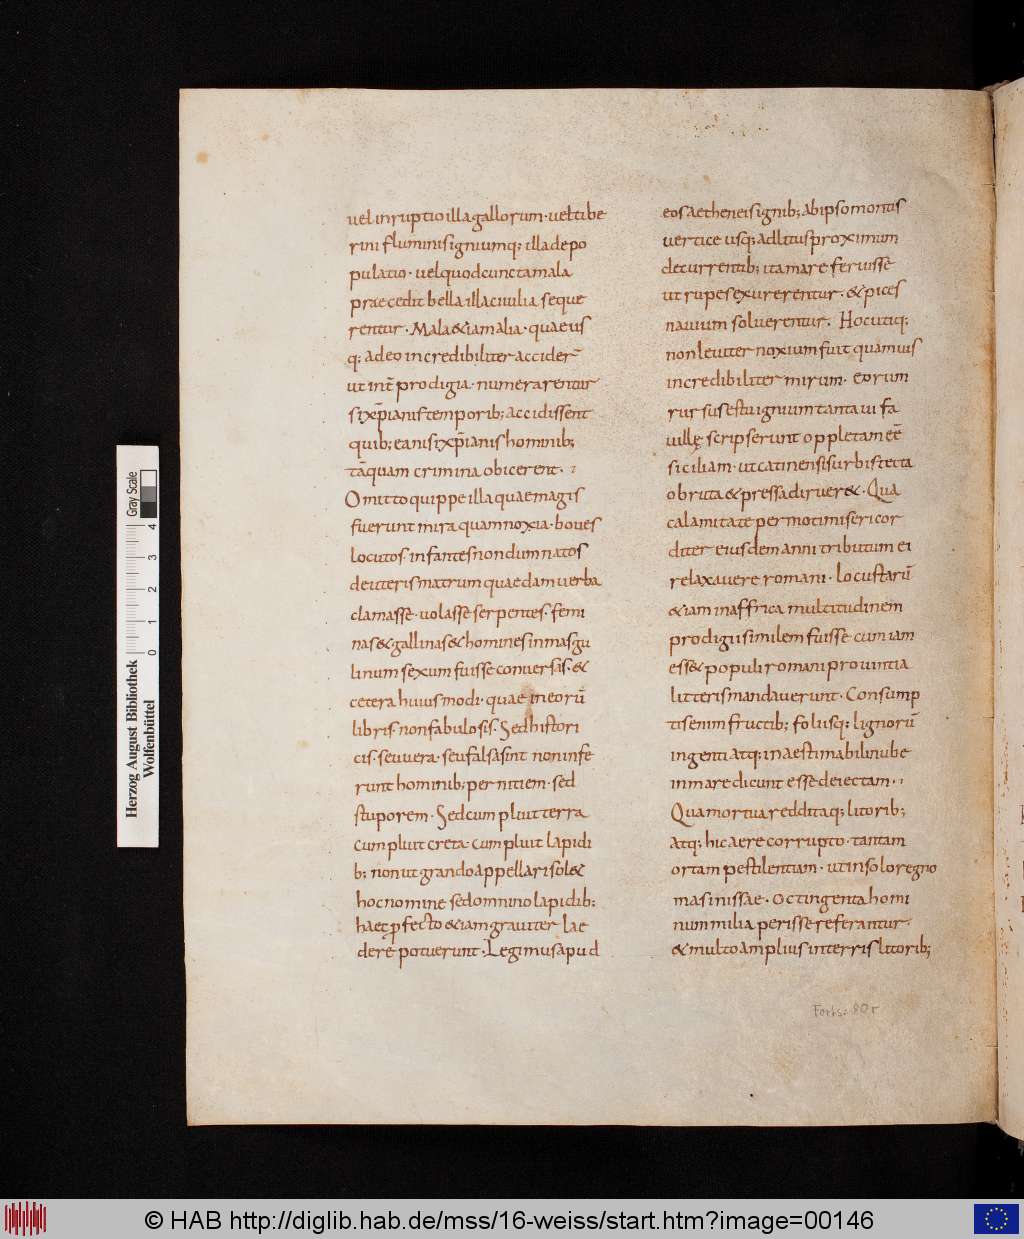 uel inruptio illa gallorum· uel tibe
rini fluminis igniumq; illa depo
pulatio· uel quod cuncta mala
praecedit bella illa ciuilia seque
rentur· Mala etiam alia· quae us
q; adeo incredibiliter acciderͭ
ut int̄ prodigia· numerarentur
si xp̄ianis temporib; accidissent
quib; ea nisi xp̄ianis hominib;
tāquam crimina obicerent·
Omitto quippe illa quae magis
fuerunt mira quam noxia· boues
locutos· infantes nondum natos
de uteris matrum quaedam uerba
clamasse· uolasse serpentes· femi
nas et gallinas et homines in masgu
linum sexum fuisse conuersas· et
cetera huius modi· quae in eorū
libris· non fabulosis· Sed histori
cis· seu uera· seu falsa sint non infe
runt hominib; pernitiem· sed
stuporem· Sed cum pluit terra
cum pluit creta· cum pluit lapidi
b; non ut grando appellari solet
hoc nomine sed omnino lapidib;
haec ꝑfecto etiam grauiter lae
dere potuerunt· Legimus apud
eos aetheneis ignib; ab ipso montis
uertice usq; ad litus proximum
decurrentib; ita mare feruissē
ut rupes exurerentur· et pices
nauium soluerentur· Hoc utiq;
non leuiter noxium fuit quamuis
incredibiliter mirum· eorum
rursus estu ignium tanta ui fa
uillę scripserunt oppletam eē
siciliam· ut catinensis urbis tecta
obruta et pressa dirueret· Qua
calamitate permoti misericor
diter eiusdem anni tributum ei
relaxauere romani· locustarū
etiam in affrica multitudinem
prodigii similem fuisse cum iam
esset populi romani prouintia
litteris mandauerunt· Consump
tis enim fructib; foliisq; lignorū
ingenti atq; inaestimabili nube
in mare dicunt esse deiectam·
Qua mortua redditaq; litorib;
atq; hic aere corrupto· tantam
ortam pestilentiam· ut in solo regno
masinissae· octingenta homi
num milia perisse referantur·
et multo amplius in terris litorib;
Forts: 80r
Herzog August Bibliothek
Wolfenbüttel
0 1 2 3 4
Gray Scale
© HAB http://diglib.hab.de/mss/16-weiss/start.htm?image=00146